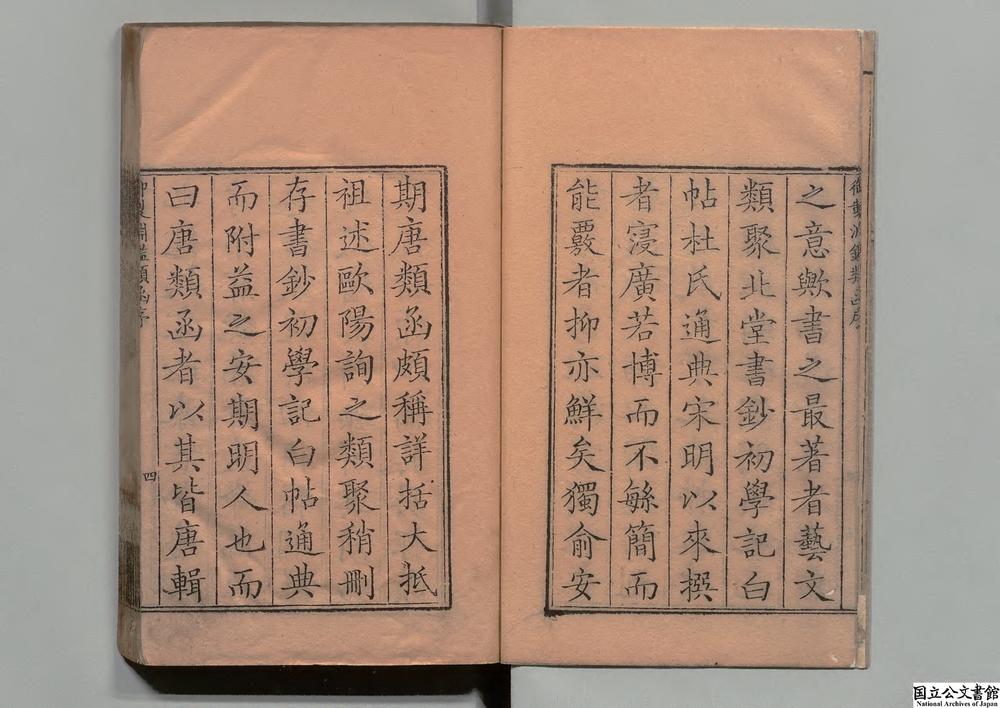 御製淵鑑類函序
之意歟書之最著者藝文
類聚北堂書鈔初學記白
帖杜氏通典宋明以來撰
者寖廣若博而不緐簡而
能覈者抑亦鮮矣獨俞安
期唐類函頗稱詳括大抵
祖述歐陽詢之類聚稍刪
存書鈔初學記白帖通典
而附益之安期明人也而
曰唐類函者以其皆唐輯
御製淵鑑類函序
四
国立公文書館
National Archives of Japan